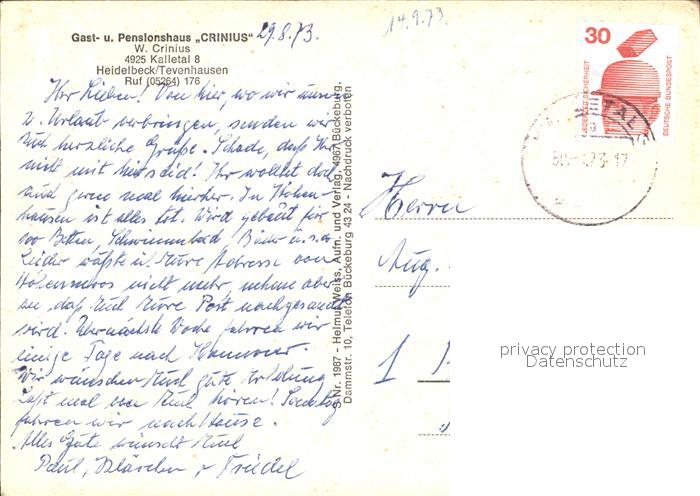 Gast- u. Pensionshaus „CRINIUS"
W. Crinius
4925 Kalletal 8
Heidelbeck/Tevenhausen
Ruf (05264) 176
29.8.73.
14.9.73
Ihr Lieben! Von hier, wo wir unsern
2. Urlaub verbringen, senden wir
Euch herzliche Grüße. Schade, daß Ihr
nicht mit hier seid! Ihr wolltet doch
auch gerne mal hierher. In
hausen ist alles tot. Wird gebaut für
100 Betten, Schwimmbad, Bäder u.s.w.
Leider wußte ich Eure Adresse von
nicht mehr, nehme aber
an daß Euch Eure Post nachgesandt
wird. Übernächste Woche fahren wir
einige Tage nach Hannover.
Wir wünschen Euch gute Erholung.
Laßt mal von Euch hören! Sonntag
fahren wir nach Hause.
Alles Gute wünscht Euch
Paul, Klärchen u Friedel
S Nr. 1967 - Helmut Weiss, Aufn. und Verlag, 4967 Bückeburg,
Dammstr. 10, Telefon Bückeburg 43 24 - Nachdruck verboten
30
JEDERZEIT SICHERHEIT
DEUTSCHE BUNDESPOST
Herrn
Aug.
1
privacy protection
Datenschutz